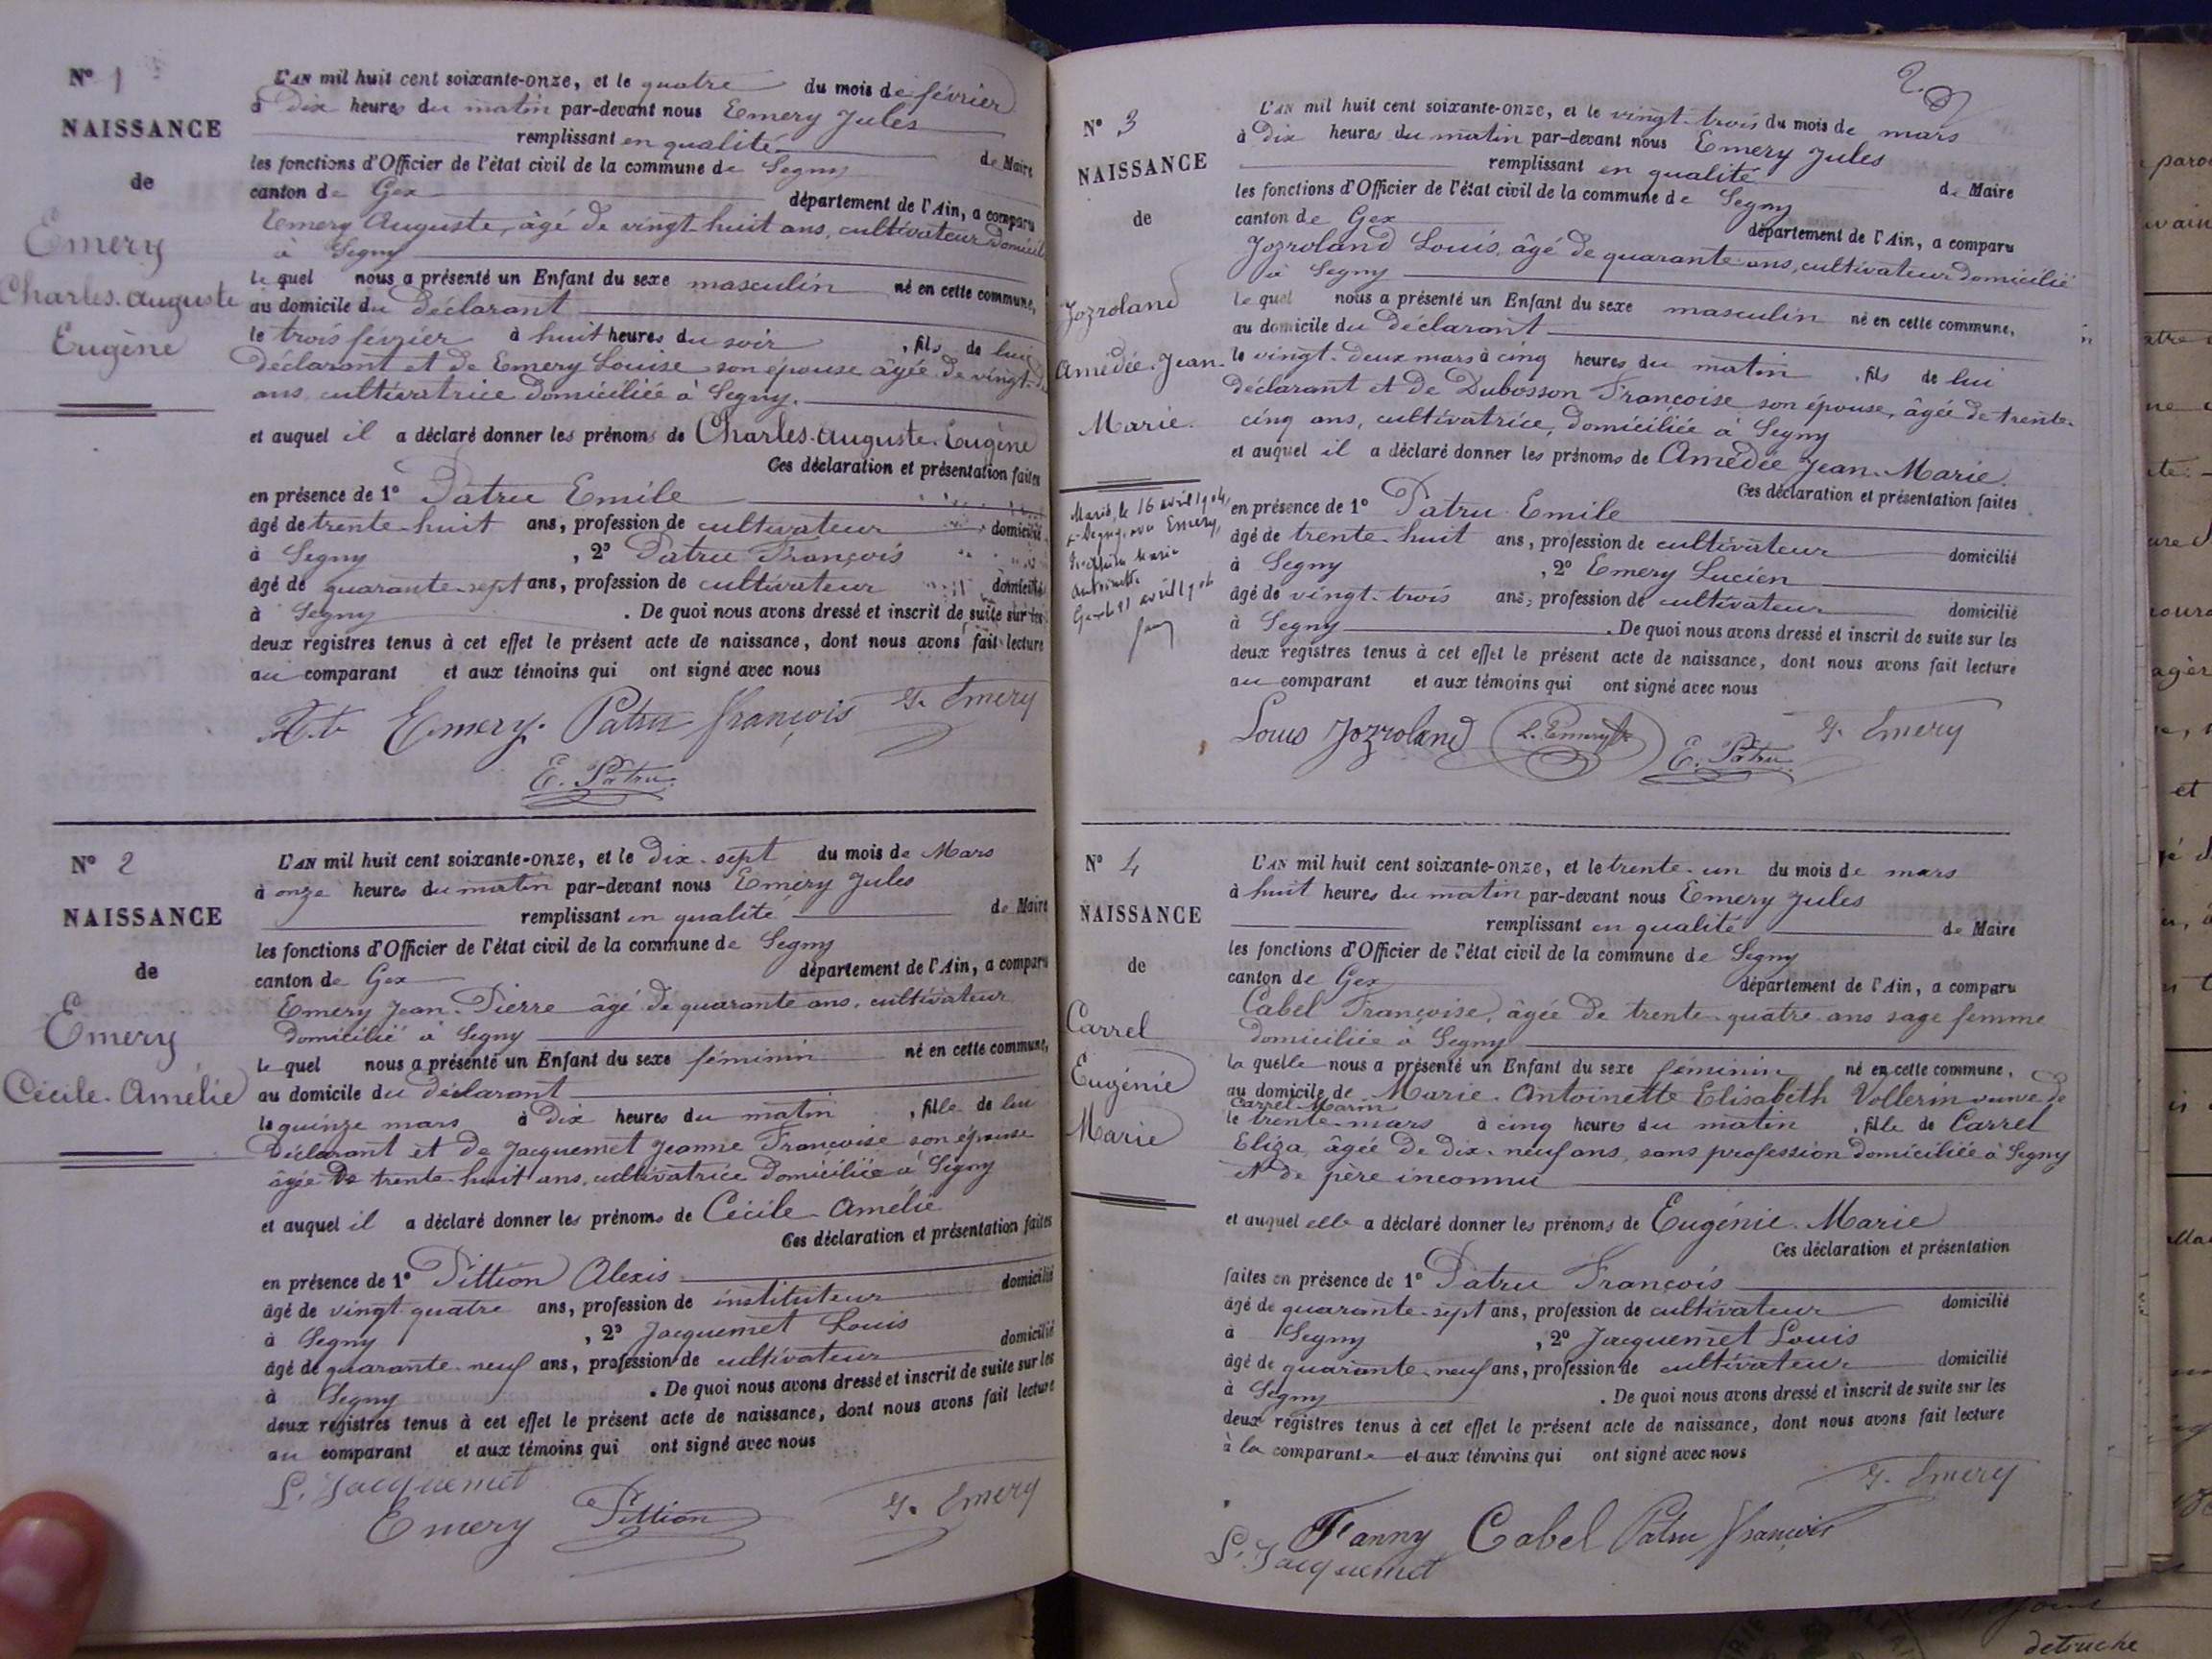 N° 1
NAISSANCE
de
Emery
Charles. Auguste
Eugène
L'AN mil huit cent soixante-onze, et le quatre du mois de février
à Dix heures du matin par-devant nous Emery Jules
remplissant en qualité de Maire
les fonctions d'Officier de l'état civil de la commune de Segny
canton de Gex département de l'Ain, a comparu
Emery Auguste, âgé de vingt-huit ans, cultivateur domicil
à Segny
le quel nous a présenté un Enfant du sexe masculin né en cette commune,
au domicile du déclarant
le trois février à huit heures du soir , fils de lui
déclarant et de Emery Louise son épouse âgée de vingt-
ans, cultivatrice domiciliée à Segny.
et auquel il a déclaré donner les prénoms de Charles. Auguste. Eugène
Ces déclaration et présentation faites
en présence de 1° Patru Emile
âgé de trente-huit ans, profession de cultivateur domicilié
à Segny , 2° Patru François
âgé de quarante-sept ans, profession de cultivateur domicilié
à Segny . De quoi nous avons dressé et inscrit de suite sur les
deux registres tenus à cet effet le présent acte de naissance, dont nous avons fait lecture
au comparant et aux témoins qui ont signé avec nous
Emery. Patru François J. Emery
E. Patru
N° 2
NAISSANCE
de
Emery
Cécile. Amélie
L'AN mil huit cent soixante-onze, et le Dix-sept du mois de Mars
à onze heures du matin par-devant nous Emery Jules
remplissant en qualité de Maire
les fonctions d'Officier de l'état civil de la commune de Segny
canton de Gex département de l'Ain, a comparu
Emery Jean-Pierre âgé de quarante ans, cultivateur
domicilié à Segny
le quel nous a présenté un Enfant du sexe féminin né en cette commune,
au domicile du déclarant
le quinze mars à Dix heures du matin , fille de lui
déclarant et de Jacquemet Jeanne Françoise son épouse
âgée de trente-huit ans, cultivatrice domiciliée à Segny
et auquel il a déclaré donner les prénoms de Cécile-Amélie
Ces déclaration et présentation faites
en présence de 1° Pittion Alexis
âgé de vingt-quatre ans, profession de instituteur domicilié
à Segny , 2° Jacquemet Louis
âgé de quarante-neuf ans, profession de cultivateur domicilié
à Segny . De quoi nous avons dressé et inscrit de suite sur les
deux registres tenus à cet effet le présent acte de naissance, dont nous avons fait lecture
au comparant et aux témoins qui ont signé avec nous
L. Jacquemet
Emery Pittion J. Emery
N° 3
NAISSANCE
de
Jozroland
Amédée-Jean-
Marie.
Marié, le 16 avril 1904,
à Segny, avec Emery,
Marie
Antoinette
Gex le 21 avril 1904
L'AN mil huit cent soixante-onze, et le vingt-trois du mois de mars
à Dix heures du matin par-devant nous Emery Jules
remplissant en qualité de Maire
les fonctions d'Officier de l'état civil de la commune de Segny
canton de Gex département de l'Ain, a comparu
Jozroland Louis, âgé de quarante ans, cultivateur domicilié
à Segny
le quel nous a présenté un Enfant du sexe masculin né en cette commune,
au domicile du déclarant
le vingt-deux mars à cinq heures du matin , fils de lui
déclarant et de Dubosson Françoise son épouse, âgée de trente-
cinq ans, cultivatrice, domiciliée à Segny
et auquel il a déclaré donner les prénoms de Amédée Jean-Marie.
Ces déclaration et présentation faites
en présence de 1° Patru Emile
âgé de trente-huit ans, profession de cultivateur domicilié
à Segny , 2° Emery Lucien
âgé de vingt-trois ans, profession de cultivateur domicilié
à Segny . De quoi nous avons dressé et inscrit de suite sur les
deux registres tenus à cet effet le présent acte de naissance, dont nous avons fait lecture
au comparant et aux témoins qui ont signé avec nous
Louis Jozroland L. Emery E. Patru J. Emery
N° 4
NAISSANCE
de
Carrel
Eugénie
Marie
L'AN mil huit cent soixante-onze, et le trente-un du mois de mars
à huit heures du matin par-devant nous Emery Jules
remplissant en qualité de Maire
les fonctions d'Officier de l'état civil de la commune de Segny
canton de Gex département de l'Ain, a comparu
Cabel Françoise, âgée de trente-quatre ans sage femme
domiciliée à Segny
la quelle nous a présenté un Enfant du sexe féminin né en cette commune,
au domicile de Marie-Antoinette Elisabeth Vollerin veuve de
Carrel Marin
le trente mars à cinq heures du matin , fille de Carrel
Eliza, âgée de dix-neuf ans, sans profession domiciliée à Segny
et de père inconnu
et auquel elle a déclaré donner les prénoms de Eugénie. Marie
Ces déclaration et présentation
faites en présence de 1° Patru François
âgé de quarante-sept ans, profession de cultivateur domicilié
à Segny , 2° Jacquemet Louis
âgé de quarante-neuf ans, profession de cultivateur domicilié
à Segny . De quoi nous avons dressé et inscrit de suite sur les
deux registres tenus à cet effet le présent acte de naissance, dont nous avons fait lecture
à la comparante et aux témoins qui ont signé avec nous
J. Emery
Fanny Cabel Patru François
L. Jacquemet
détruche